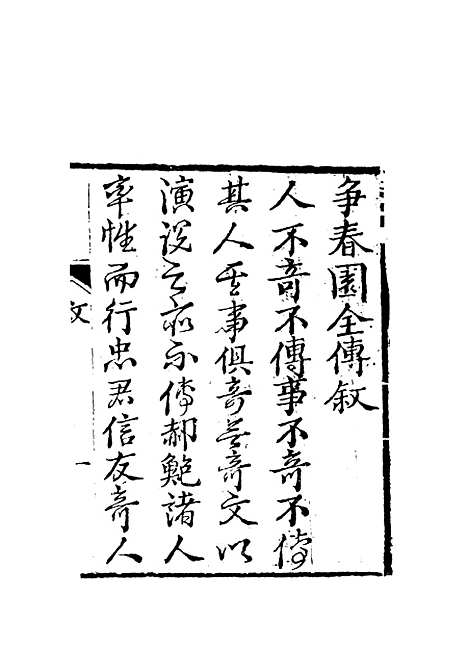 争春園全傳叙
人不奇不傳事不奇不傳
其人其事俱奇無奇文以
演说之亦不傳郝鮑諸人
率性而行忠君信友奇人
文
一